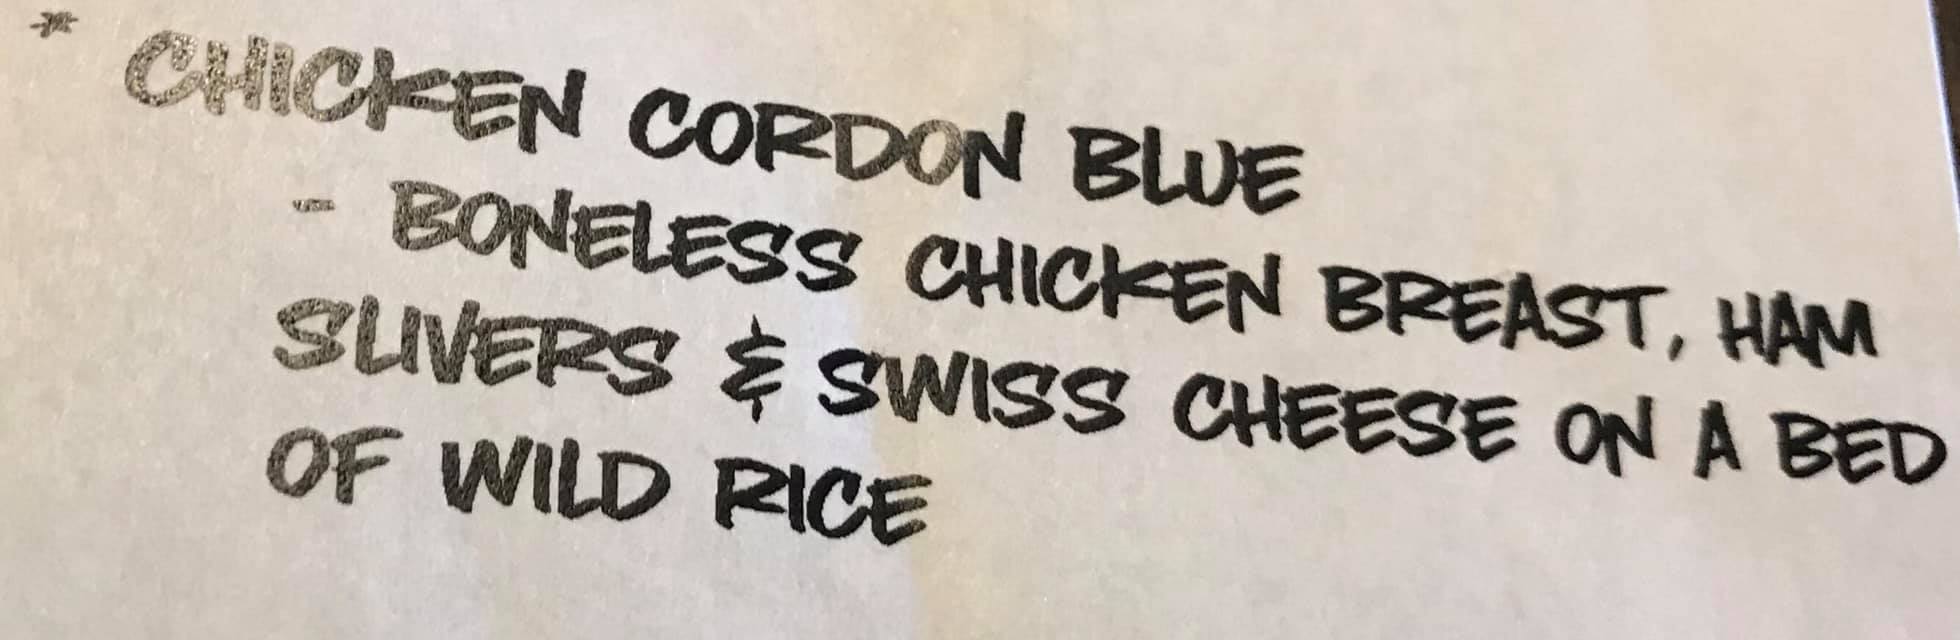 * CHICKEN CORDON BLUE
- BONELESS CHICKEN BREAST, HAM
SLIVERS & SWISS CHEESE ON A BED
OF WILD RICE